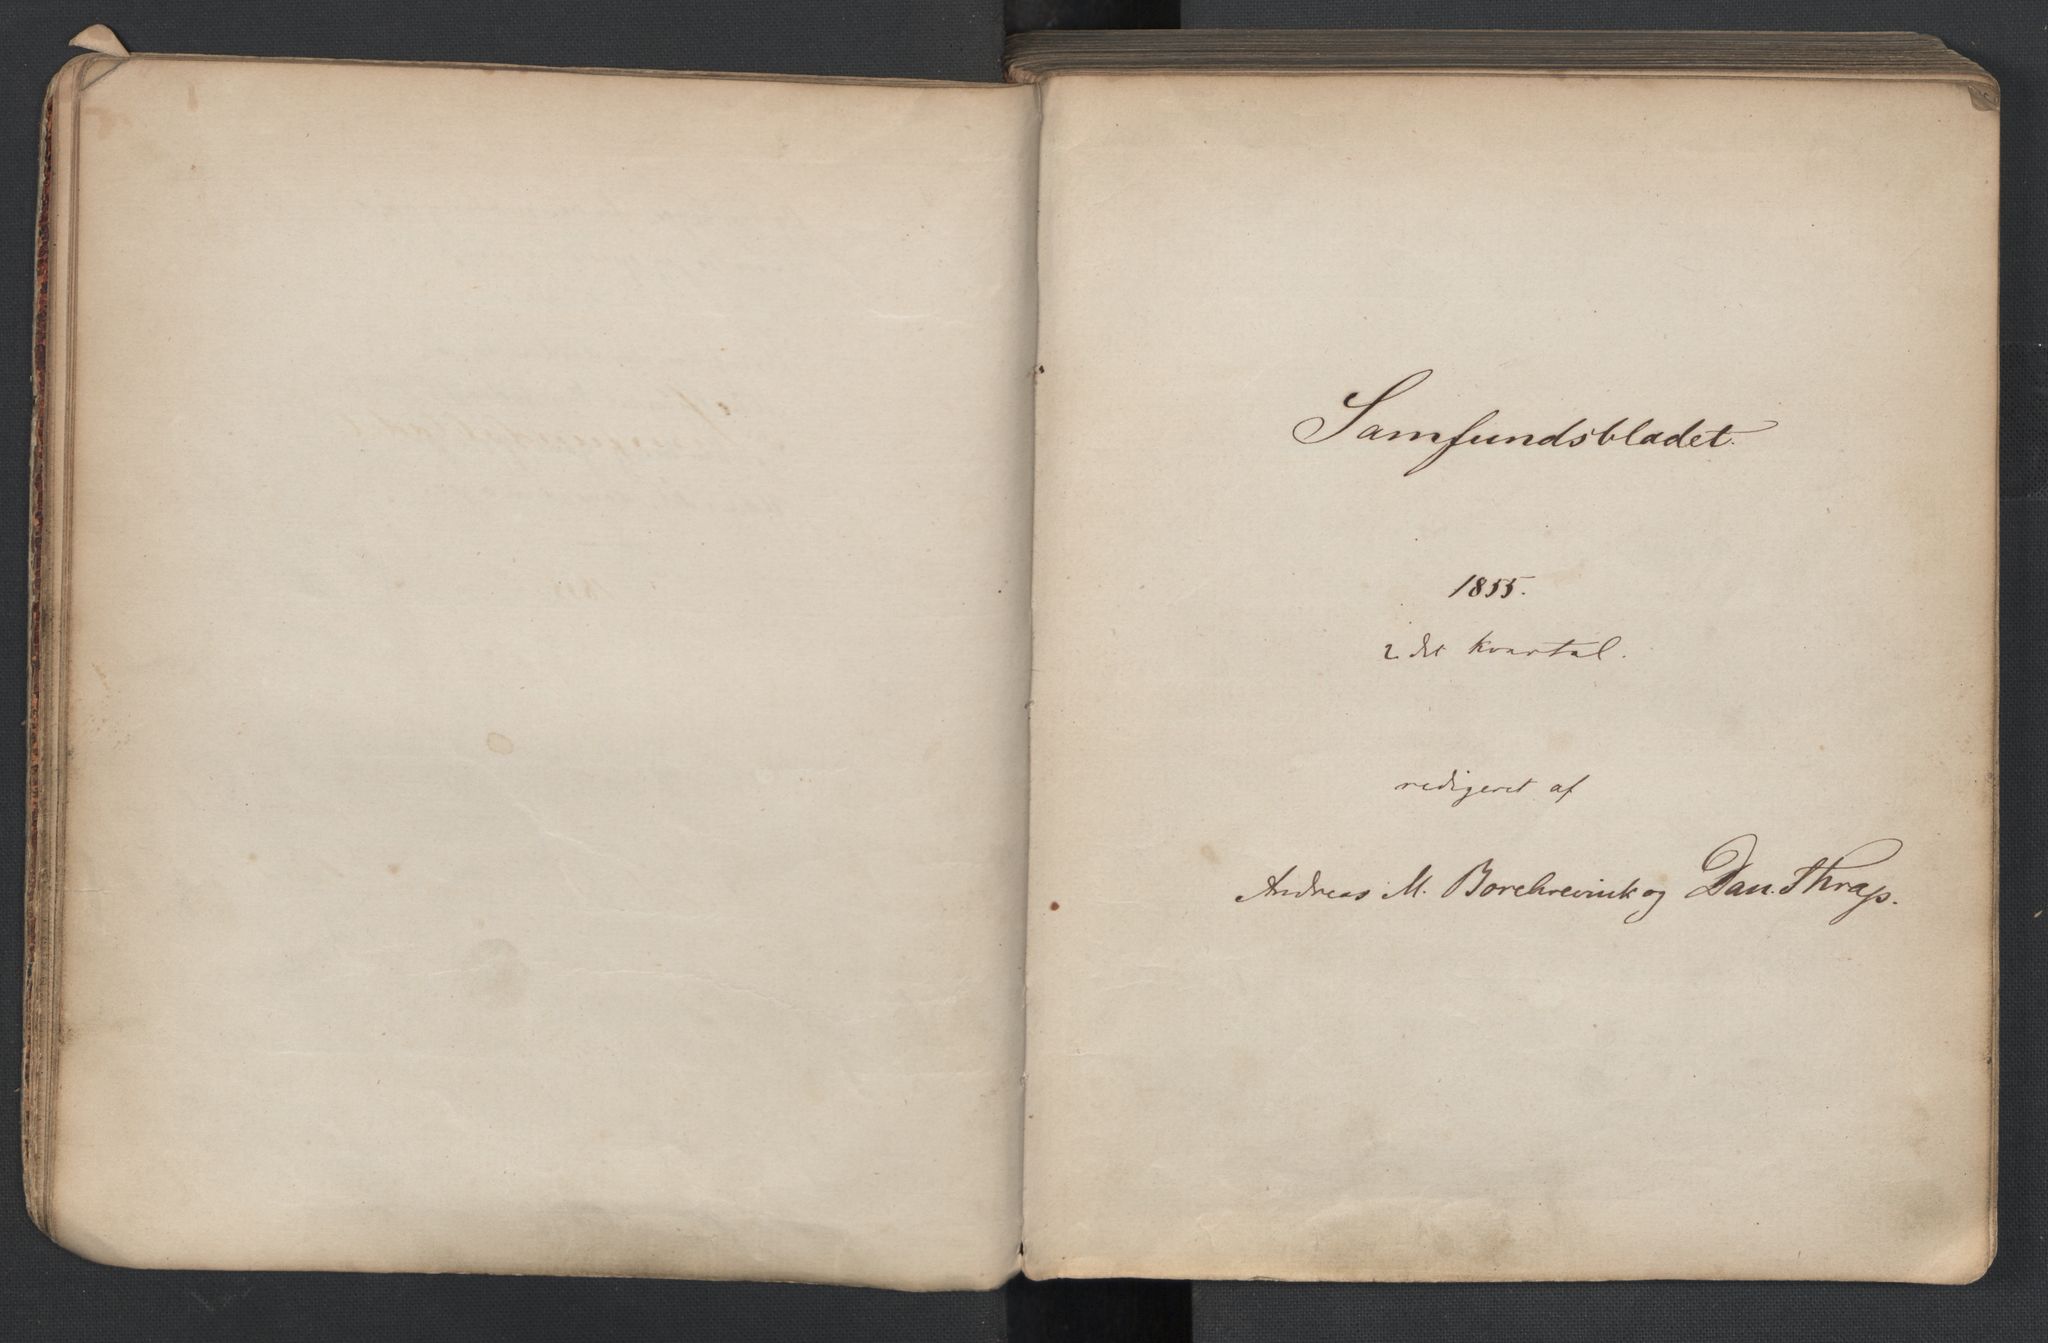 Samfundsbladet.
1855.
2det Kvartal.
redigeret af
Andreas M. Borchrevink og Dan. Thrap.